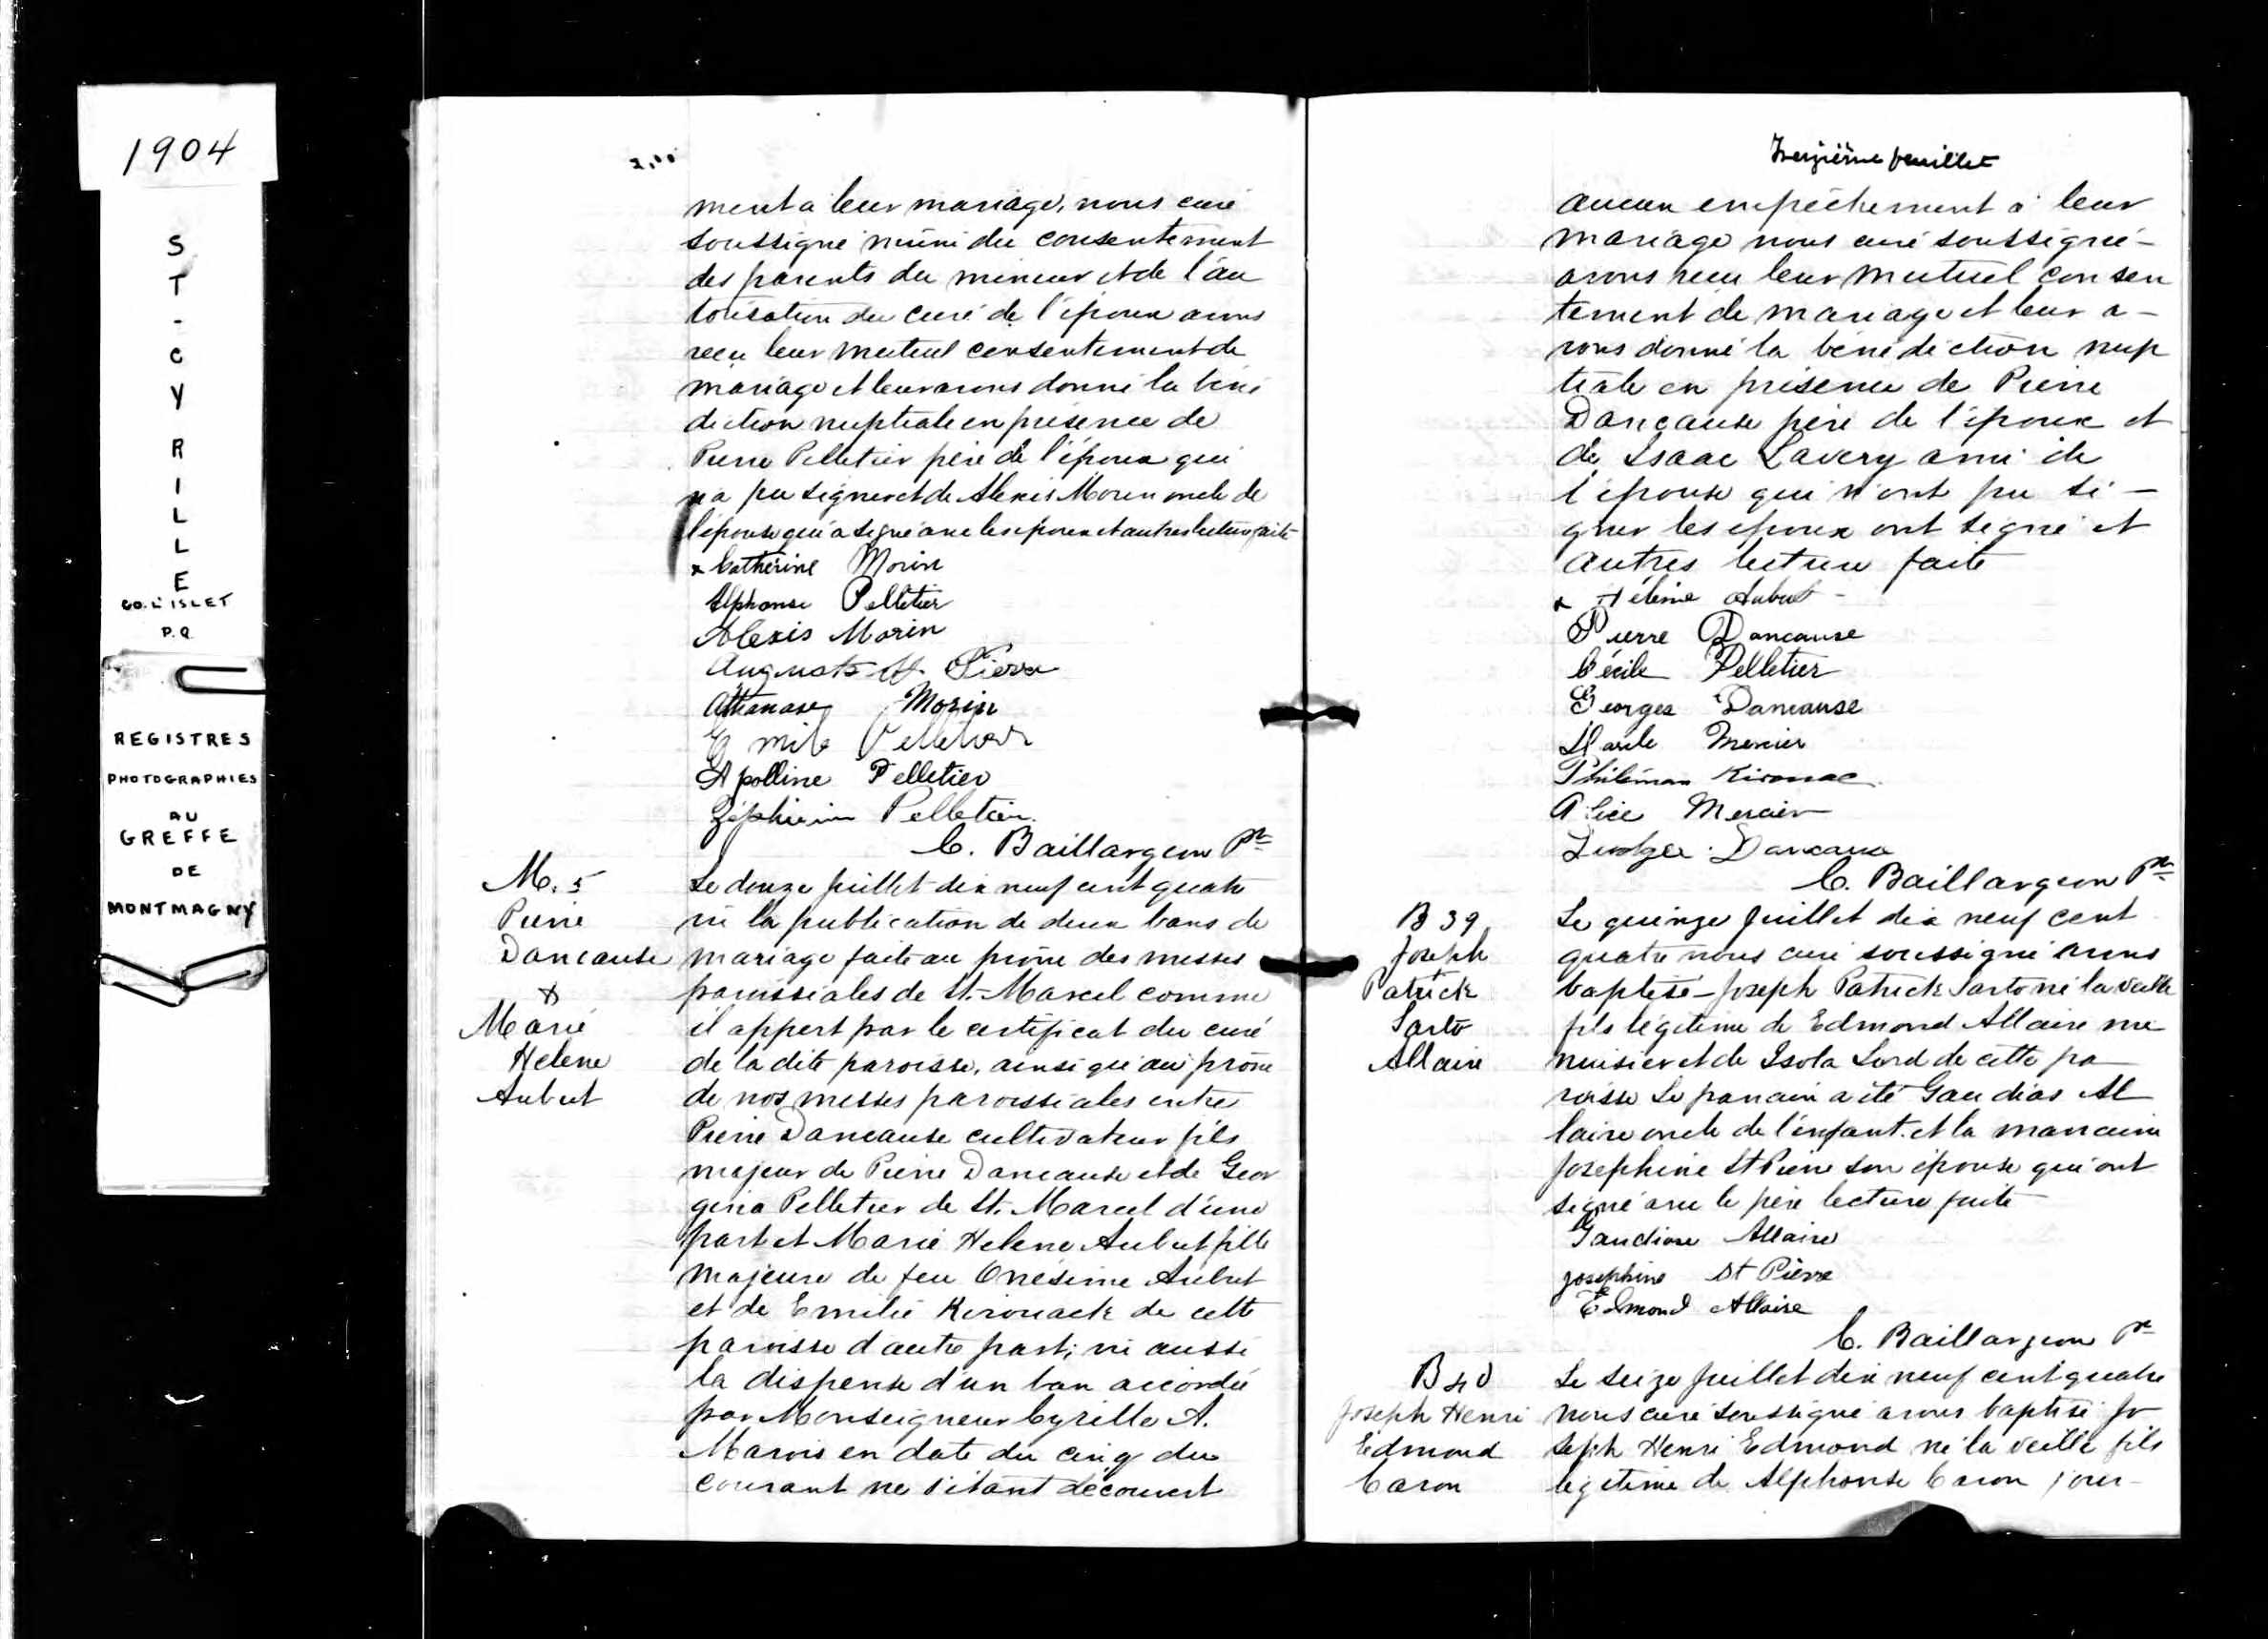 1904
ST-CYRILLE
CO. L'ISLET
P.Q.
REGISTRES
PHOTOGRAPHIES
AU
GREFFE
DE
MONTMAGNY
ment a leur mariage, nous curé
soussigné muni du consentement
des parents du mineur et de l'au
torisation du curé de l'époux avons
reçu leur mutuel consentement de
mariage et leur avons donné la béné
diction nuptiale en présence de
Pierre Pelletier père de l'époux qui
n'a pu signer et de Alexis Morin oncle de
l'épouse qui a signé avec les époux et autres lecture faite
x Catherine Morin
Alphonse Pelletier
Alexis Morin
Auguste St. Pierre
Athanase Morin
Emile Pelletier
Apolline Pelletier
Zéphirin Pelletier
C. Baillargeon Ptre
M. 5
Pierre
Dancause
&
Marie
Helene
Aubut
Le douze juillet dix neuf cent quatre
vu la publication de deux bans de
mariage faite au prône des messes
paroissiales de St.-Marcel comme
il appert par le certificat du curé
de la dite paroisse, ainsi qu'au prône
de nos messes paroissiales entre
Pierre Dancause cultivateur fils
majeur de Pierre Dancause et de Geor
gina Pelletier de St. Marcel d'une
part et Marie Helene Aubut fille
majeure de feu Onésime Aubut
et de Emilie Kirouack de cette
paroisse d'autre part; vu aussi
la dispense d'un ban accordée
par Monseigneur Cyrille A.
Marois en date du cinq du
courant ne s'étant découvert
Treizième feuillet
aucun empêchement à leur
mariage nous curé soussigné -
avons reçu leur mutuel consen
tement de mariage et leur a -
vons donné la bénédiction nup
tiale en présence de Pierre
Dancause père de l'époux et
de Isaac Lavery ami de
l'épouse qui n'ont pu si -
gner les époux ont signé et
autres lecture faite
x Hélène Aubut -
Pierre Dancause
Cécile Pelletier
Georges Dancause
Mercier
Philémon Kirouac
Alice Mercier
Dancause
C. Baillargeon Ptre
B 39
Joseph
Patrick
Sarto
Allaire
Le quinze Juillet dix neuf cent
quatre nous curé soussigné avons
baptisé - Joseph Patrick Sarto né la veille
fils légitime de Edmond Allaire me
nuisier et de Isola Lord de cette pa
roisse Le parrain a été Gaudias Al
laire oncle de l'enfant et la marraine
Joséphine St Pierre son épouse qui ont
signé avec le père lecture faite
Gaudiose Allaire
Joséphine St Pierre
Edmond Allaire
C. Baillargeon Ptre
B 40
Joseph Henri
Edmond
Caron
Le seize Juillet dix neuf cent quatre
nous curé soussigné avons baptisé Jo
seph Henri Edmond né la veille fils
légitime de Alphonse Caron jour-